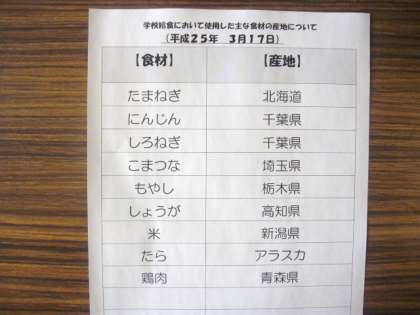 学校給食において使用した主な食材の産地について
(平成25年 3月17日)
【食材】 【産地】
たまねぎ 北海道
にんじん 千葉県
しろねぎ 千葉県
こまつな 埼玉県
もやし 栃木県
しょうが 高知県
米 新潟県
たら アラスカ
鶏肉 青森県